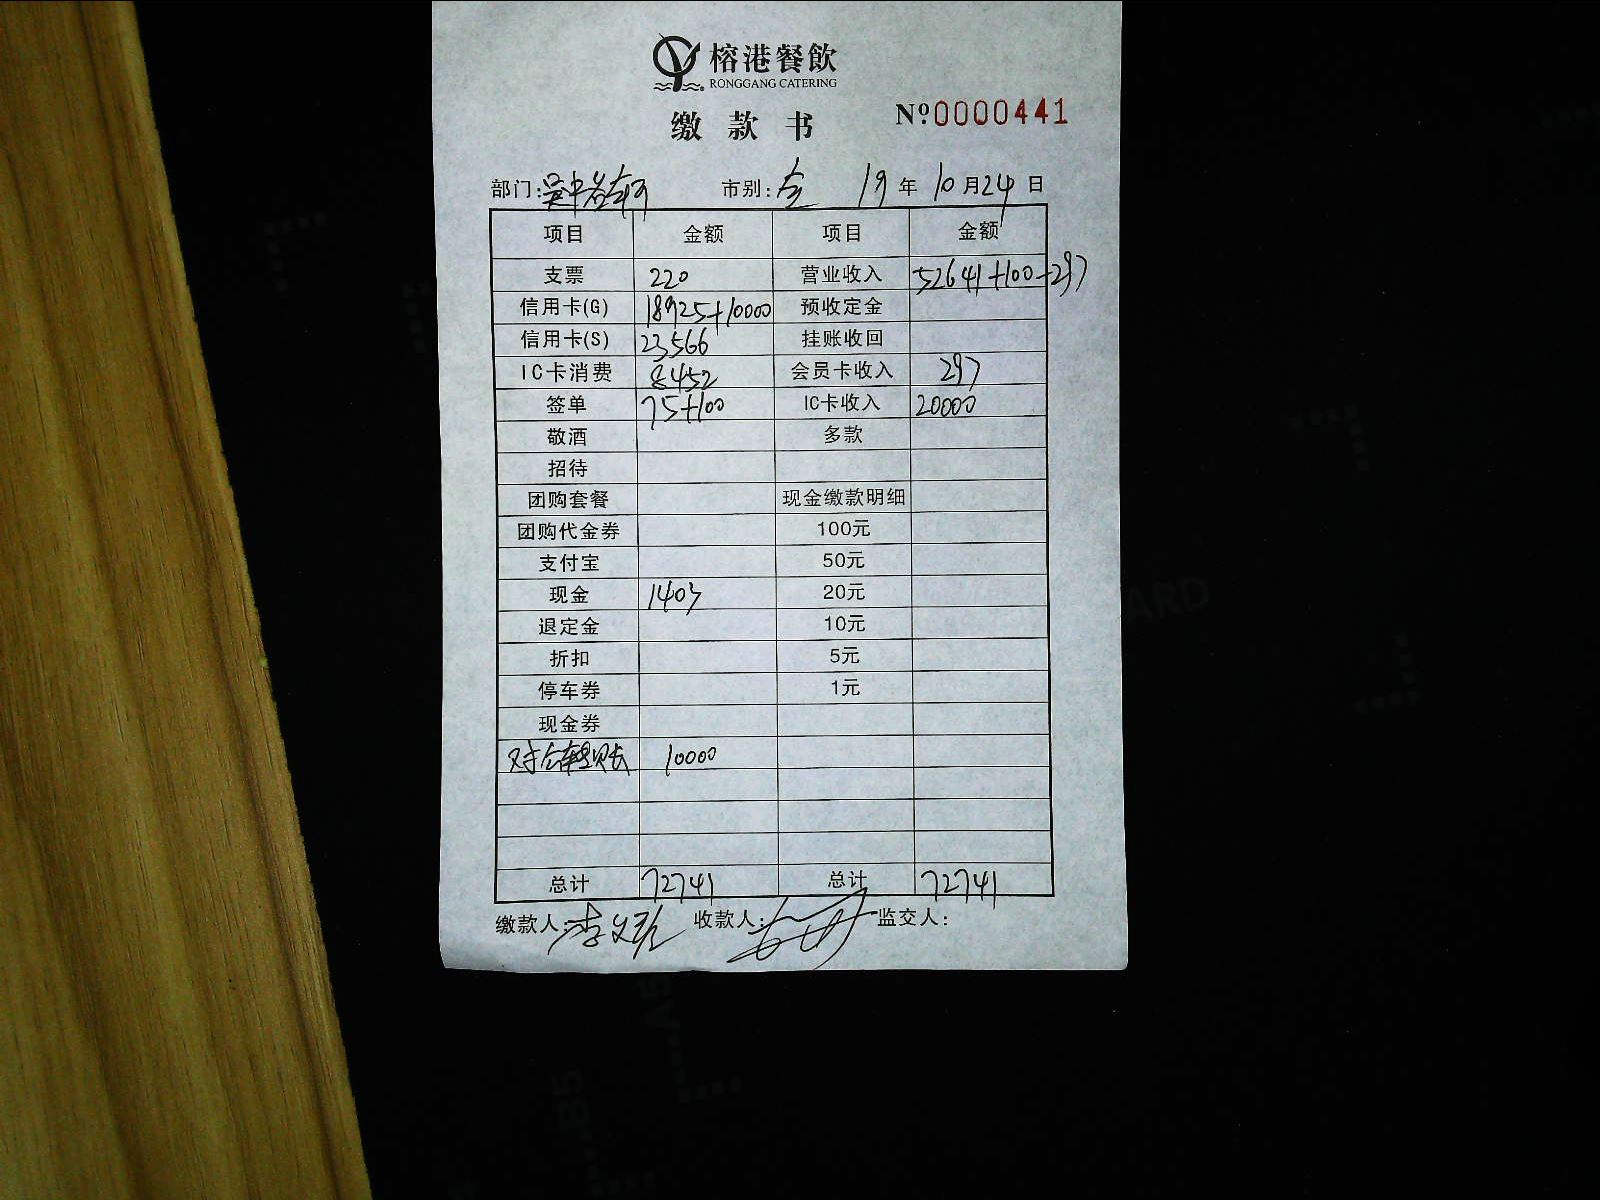 榕港餐飲
RONGGANG CATERING
缴款书 Nº0000441
部门: 市别:全 19年10月24日
项目 金额 项目 金额
支票 220 营业收入 52641+100-297
信用卡(G) 18925+10000 预收定金
信用卡(S) 23566 挂账收回
IC卡消费 8452 会员卡收入 297
签单 75+100 IC卡收入 20000
敬酒 多款
招待
团购套餐 现金缴款明细
团购代金券 100元
支付宝 50元
现金 1403 20元
退定金 10元
折扣 5元
停车券 1元
现金券
10000
总计 72741 总计 72741
缴款人: 收款人: 监交人: